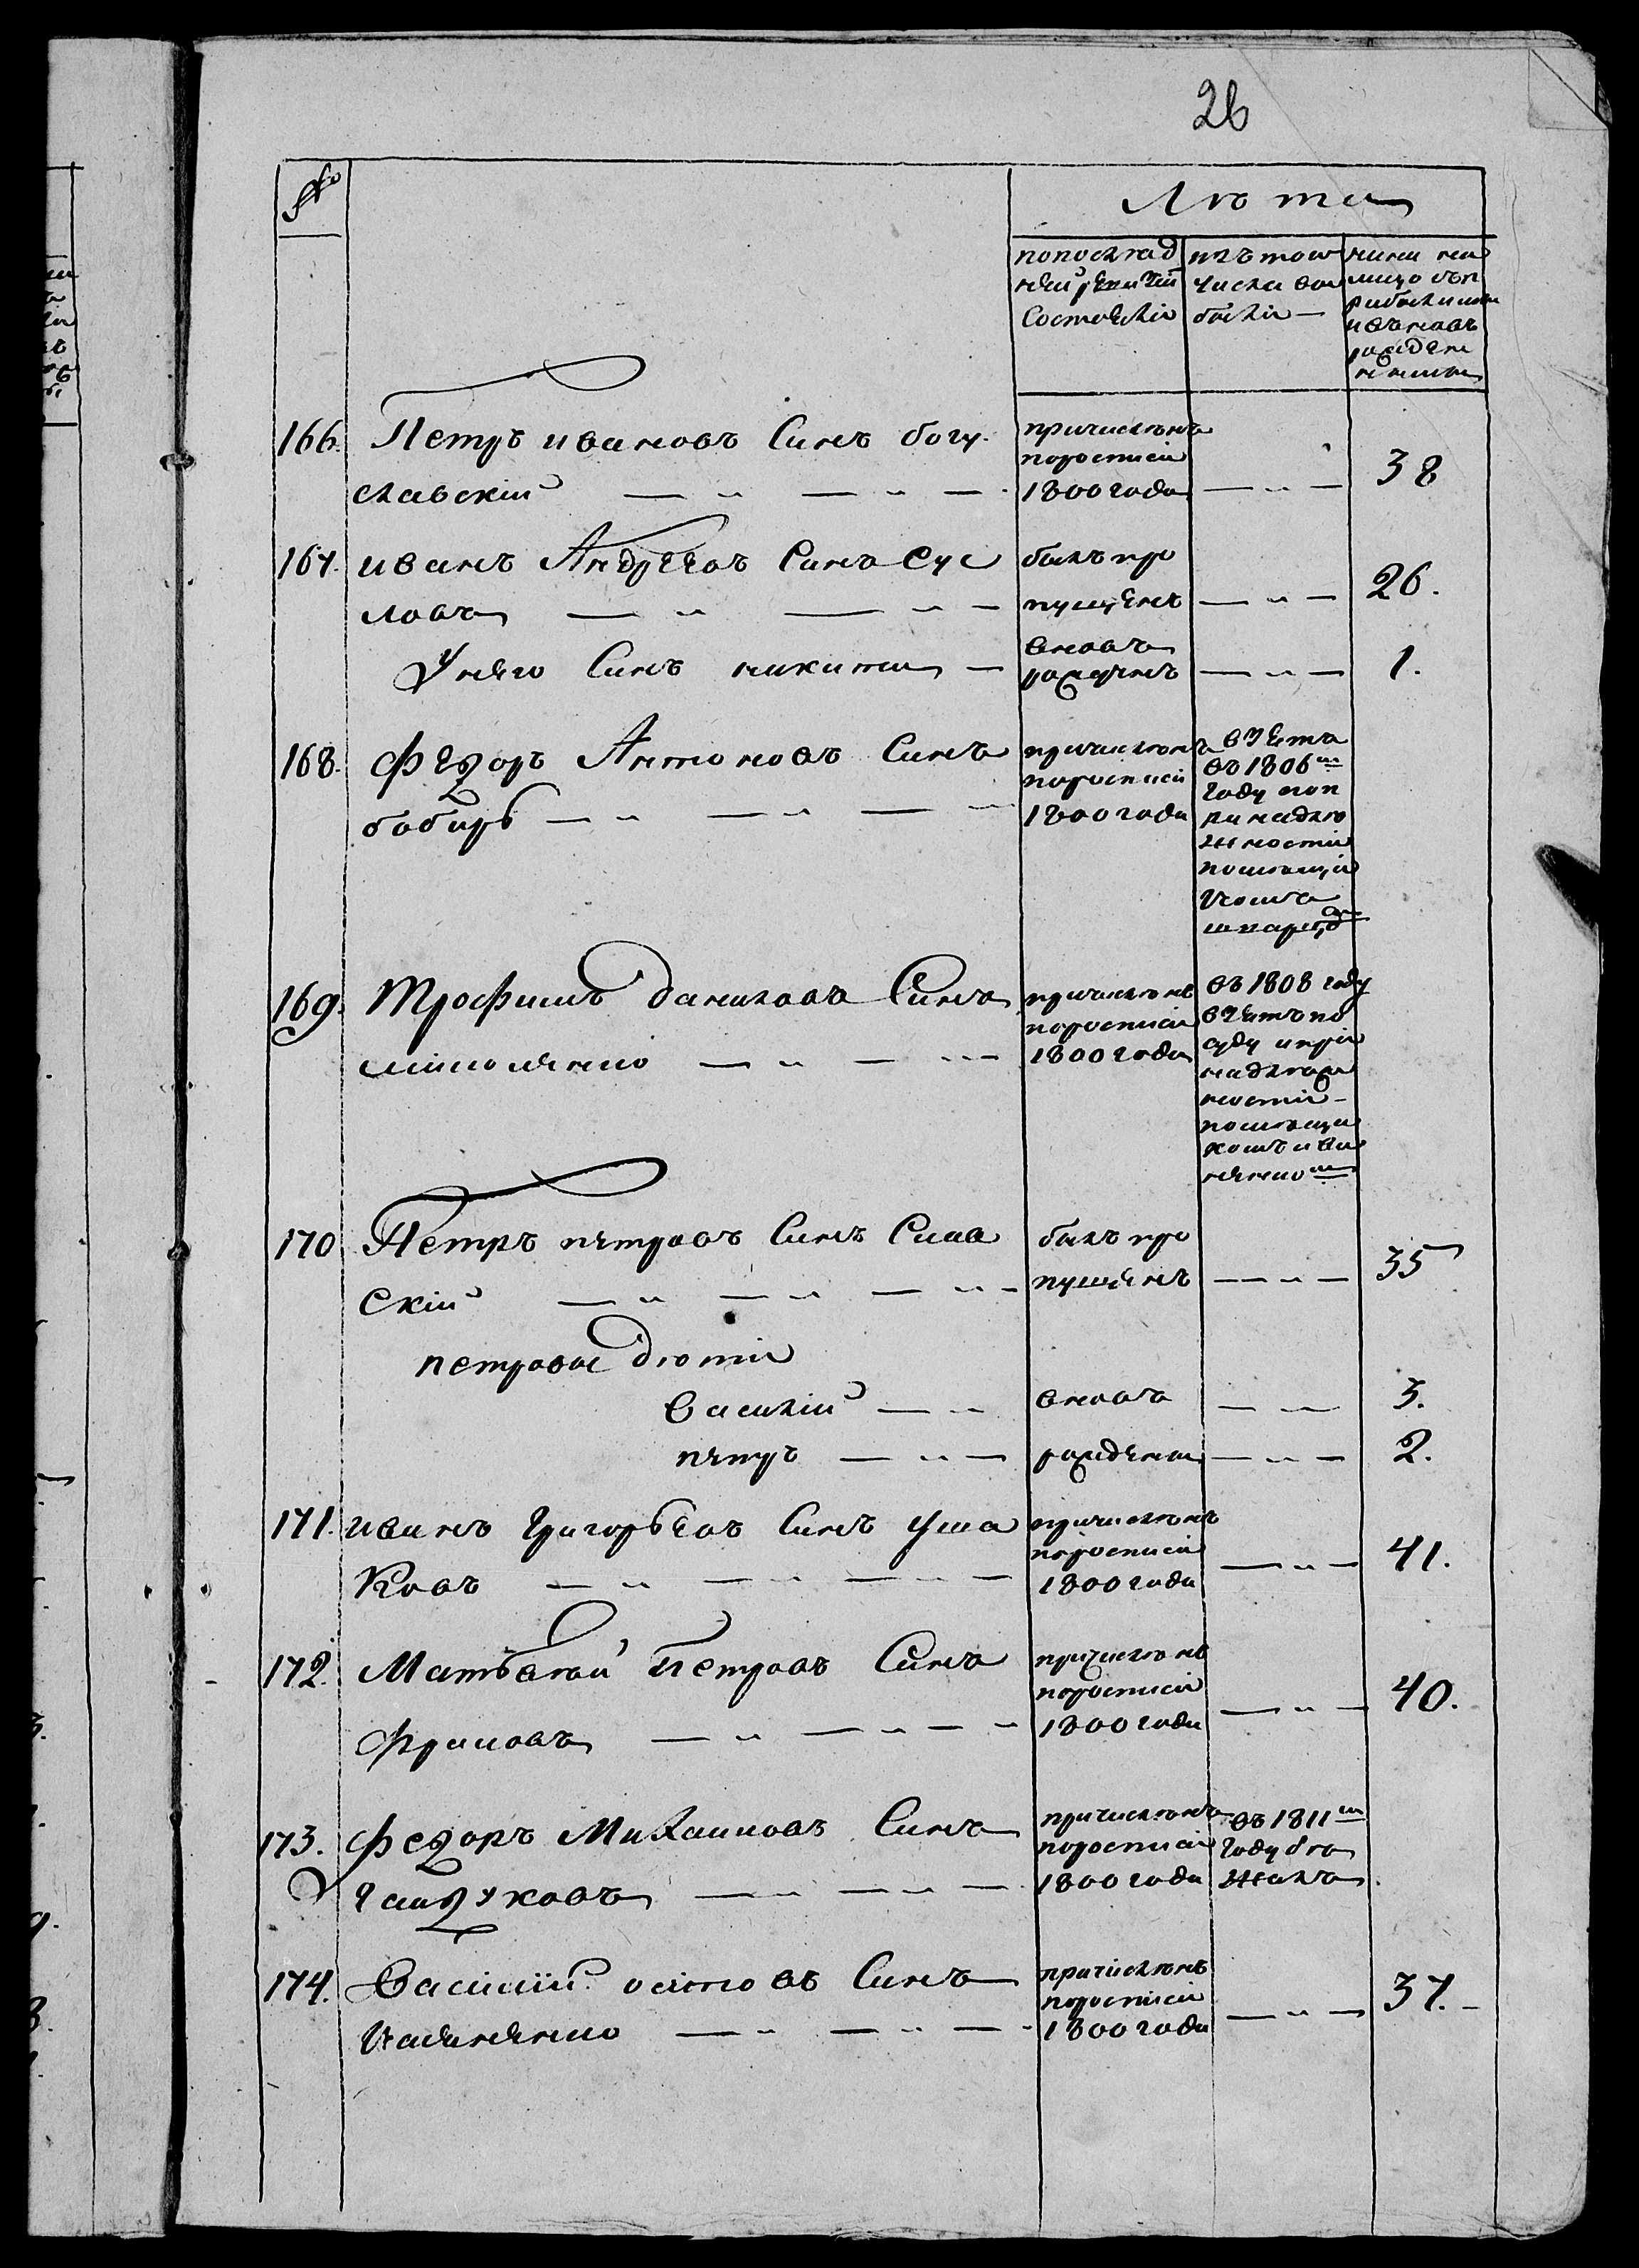 26
№
Лѣта
попослѣд
ней ревизій
состояли
изътого
числа вы
были —
ныне на
лицо съп
рибылыми
ивъновь
рожден
ными
166. Петръ ивановъ Синъ богу-
славскій — „ — „ —
причисленъ
поросписи
1800 года
— „ —
38
167. иванъ Андреевъ Синъ Сус
ловъ — „ — „ —
былъ про
пущенъ
— „ —
26.
Унего Синъ никита —
вновь
рожденъ
— „ —
1.
168. Федоръ Антоновъ Синъ
бобирь — „ — „ — „
причисленъ
поросписи
1800 года
взятъ
въ 1806м
году поп
ринадле
жности
помѣщи
комъ
169. Трофимъ даниловъ Синъ
— „ — „ —
причисленъ
поросписи
1800 года
въ 1808 году
взятъ по
судуипри
надлеж
ности —
помѣщи
комъ ива
ненком
170 Петръ петровъ Синъ Слав
скій — „ — „ — „ —
былъ про
пущенъ
— „ —
35
петрова дѣти
василій — „
вновь
— „ —
3.
петръ — „ —
рождены
— „ —
2.
171. иванъ Григорьевъ Синъ уша
ковъ — „ — „ — „ —
причисленъ
поросписи
1800 года
— „ —
41.
172. Матьвѣй Петровъ Синъ
Фроловъ — „ — „ — „
причисленъ
поросписи
1800 года
— „ —
40.
173. Федоръ Михаиловъ Синъ
— „ — „ —
причисленъ
поросписи
1800 года
въ 1811м
году бѣ
жалъ
174. Василій осиповъ Синъ
— „ — „ —
причисленъ
поросписи
1800 года
— „ —
37. —